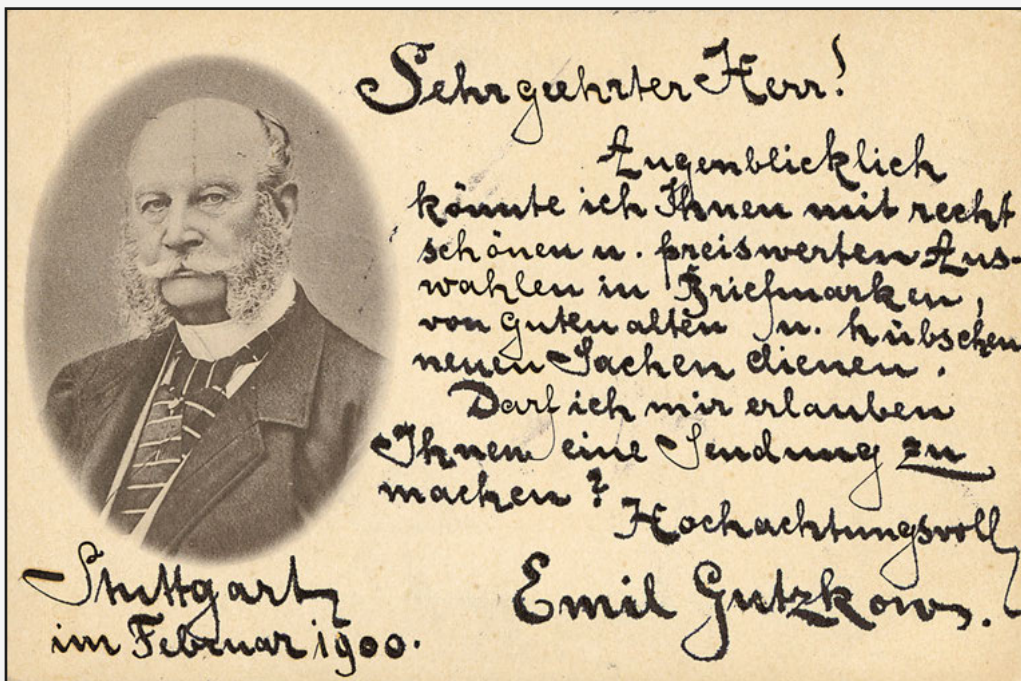 Sehr geehrter Herr!
Augenblicklich
könnte ich Ihnen mit recht
schönen u. preiswerten Aus-
wahlen in Briefmarken,
von guten alten u. hübschen
neuen Sachen dienen.
Darf ich mir erlauben
Ihnen eine Sendung zu
machen?
Hochachtungsvoll
Emil Gutzkow.
Stuttgart
im Februar 1900.